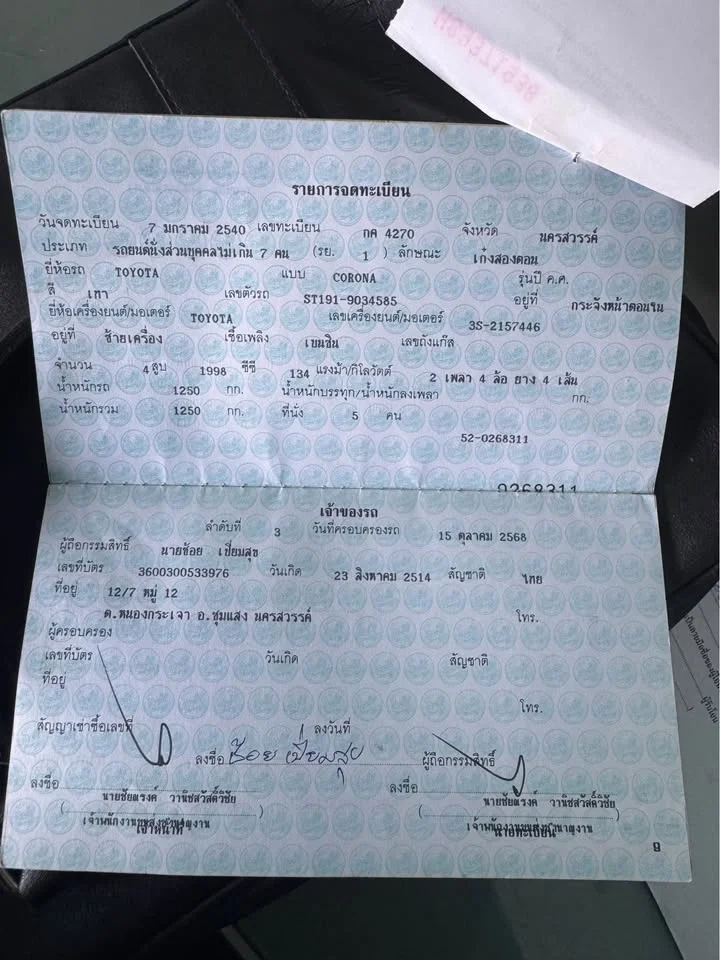 รายการจดทะเบียน
วันจดทะเบียน 7 มกราคม 2540 เลขทะเบียน กค 4270 จังหวัด นครสวรรค์
ประเภท รถยนต์นั่งส่วนบุคคลไม่เกิน 7 คน (รย. 1 ) ลักษณะ เก๋งสองตอน
ยี่ห้อรถ TOYOTA แบบ CORONA รุ่นปี ค.ศ.
สี เทา เลขตัวรถ ST191-9034585 อยู่ที่ กระจังหน้าตอนใน
ยี่ห้อเครื่องยนต์/มอเตอร์ TOYOTA เลขเครื่องยนต์/มอเตอร์ 3S-2157446
อยู่ที่ ซ้ายเครื่อง เชื้อเพลิง เบนซิน เลขถังแก๊ส
จำนวน 4 สูบ 1998 ซีซี 134 แรงม้า/กิโลวัตต์ 2 เพลา 4 ล้อ ยาง 4 เส้น
น้ำหนักรถ 1250 กก. น้ำหนักบรรทุก/น้ำหนักลงเพลา กก.
น้ำหนักรวม 1250 กก. ที่นั่ง 5 คน
52-0268311
0268311
เจ้าของรถ
ลำดับที่ 3 วันที่ครอบครองรถ 15 ตุลาคม 2568
ผู้ถือกรรมสิทธิ์ นายช้อย เปี่ยมสุข
เลขที่บัตร 3600300533976 วันเกิด 23 สิงหาคม 2514 สัญชาติ ไทย
ที่อยู่ 12/7 หมู่ 12
ต.หนองกระเจา อ.ชุมแสง นครสวรรค์ โทร.
ผู้ครอบครอง
เลขที่บัตร วันเกิด สัญชาติ
ที่อยู่
โทร.
สัญญาเช่าซื้อเลขที่ ลงวันที่
ลงชื่อ ช้อย เปี่ยมสุข ผู้ถือกรรมสิทธิ์
ลงชื่อ ลงชื่อ
นายชัยณรงค์ วานิชสวัสดิ์วิชัย นายชัยณรงค์ วานิชสวัสดิ์วิชัย
เจ้าพนักงานขนส่งชำนาญงาน เจ้าพนักงานขนส่งชำนาญงาน
เจ้าหน้าที่ นายทะเบียน
9